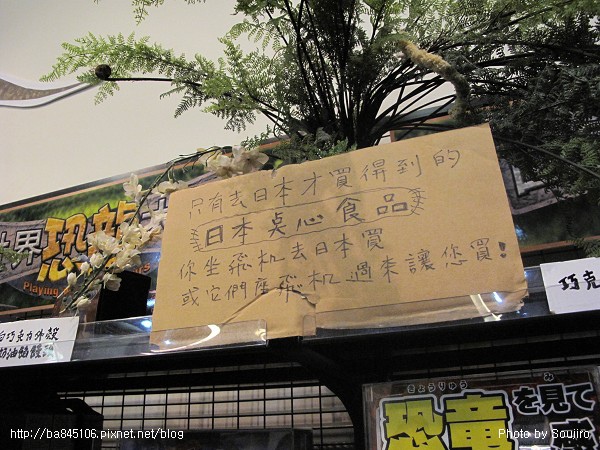 只有去日本才買得到的
日本桌心食品
你坐飛机去日本買
或它們座飛机過來讓您買!
世界恐龍
Playing
巧克
白巧克力外殼
きょうりゅう
み
恐竜を見て
http://ba845106.pixnet.net/blog
Photo by Soujiro